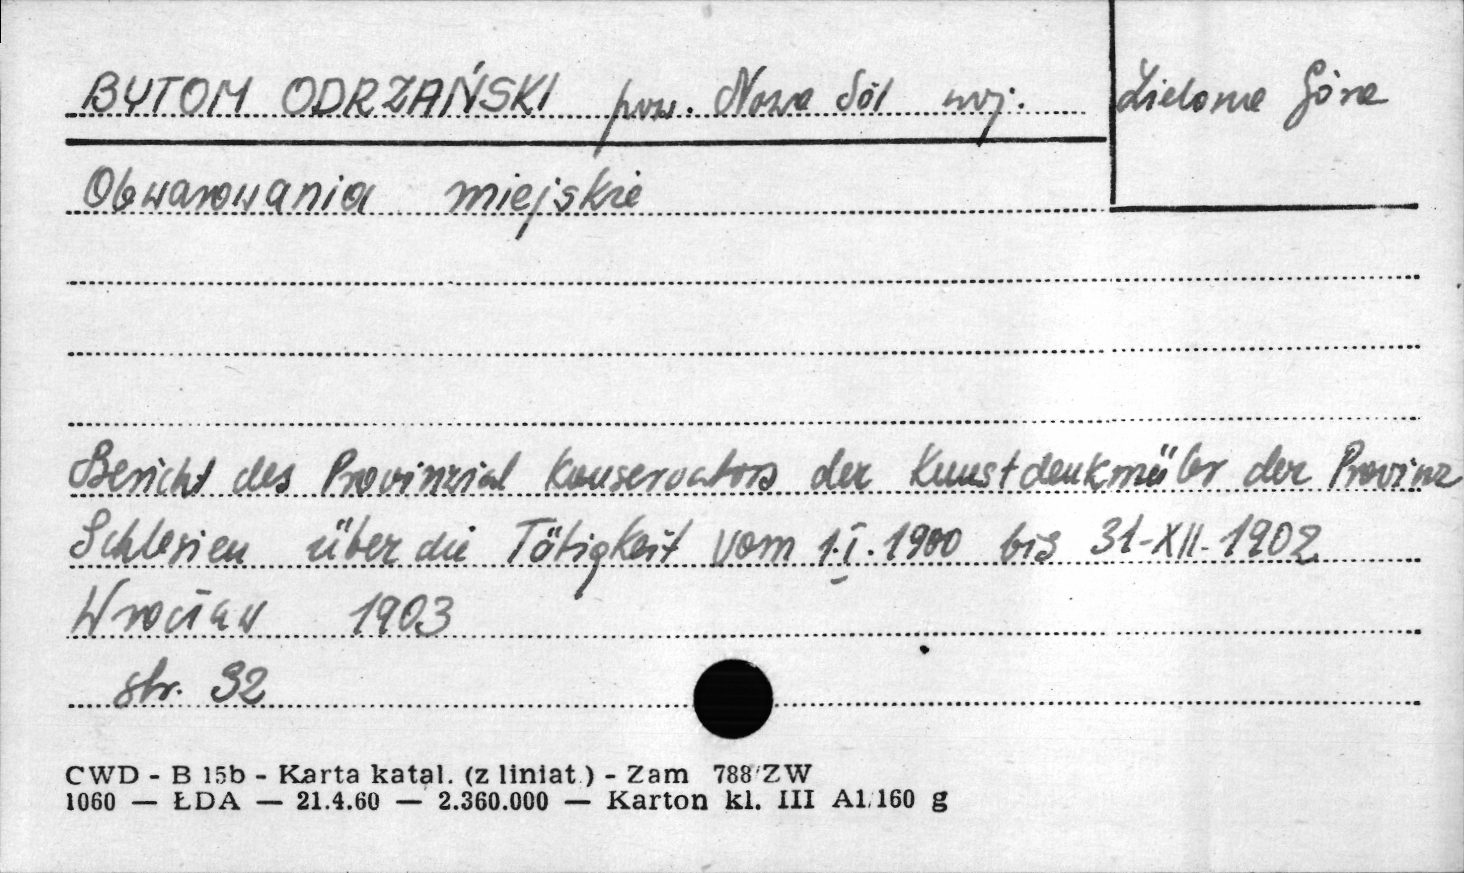 BYTOM ODRZAŃSKI pow. Nowa Sól woj. Zielona Góra
Obwarowania miejskie
Bericht des Provinzial Konservators der Kunstdenkmäler der Provinz
Schlesien über die Tätigkeit vom 1.I.1900 bis 31-XII-1902
Wrocław 1903
str. 32
CWD - B 15b - Karta katal. (z liniat.) - Zam 788/ZW
1060 — ŁDA — 21.4.60 — 2.360.000 — Karton kl. III A1/160 g